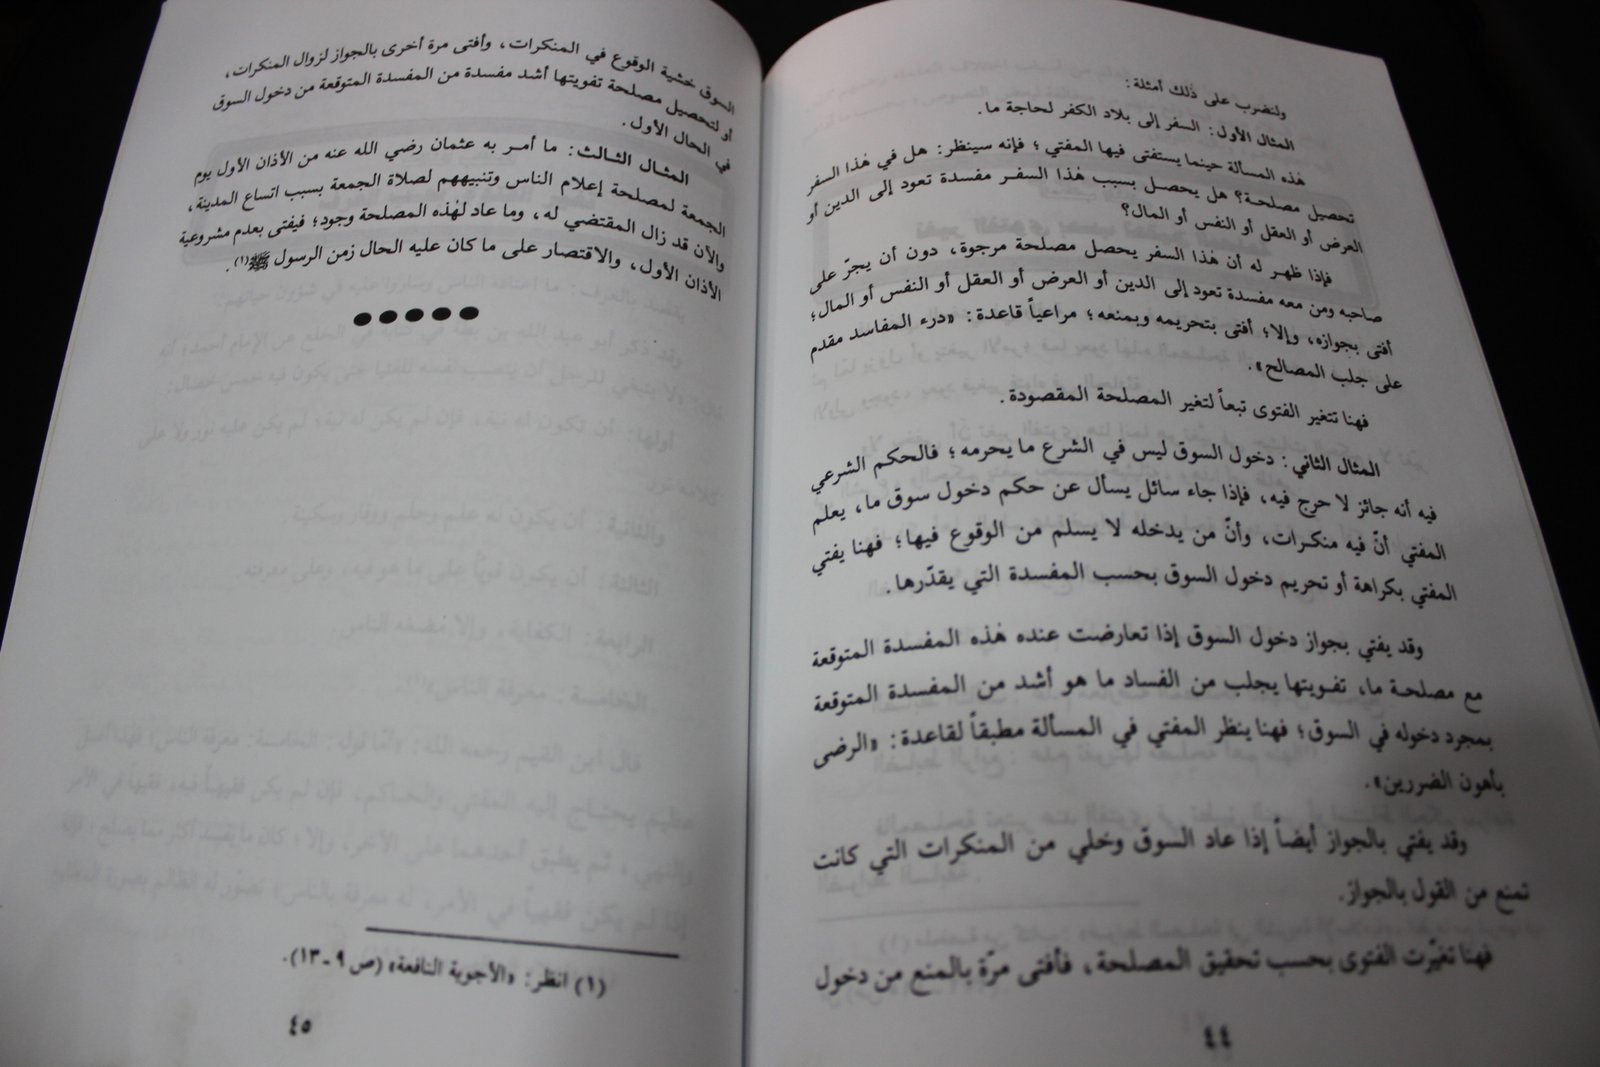 ولنضرب على ذلك أمثلة:
المثال الأول: السفر إلى بلاد الكفر لحاجة ما.
هذه المسألة حينما يستفتى فيها المفتي؛ فإنه سينظر: هل في هذا السفر
تحصيل مصلحة؟ هل يحصل بسبب هذا السفر مفسدة تعود إلى الدين أو
العرض أو العقل أو النفس أو المال؟
فإذا ظهر له أن هذا السفر يحصل مصلحة مرجوة، دون أن يجرّ على
صاحبه ومن معه مفسدة تعود إلى الدين أو العرض أو العقل أو النفس أو المال؛
أفتى بجوازه، وإلا؛ أفتى بتحريمه وبمنعه؛ مراعياً قاعدة: «درء المفاسد مقدم
على جلب المصالح».
فهنا تتغير الفتوى تبعاً لتغير المصلحة المقصودة.
المثال الثاني: دخول السوق ليس في الشرع ما يحرمه؛ فالحكم الشرعي
فيه أنه جائز لا حرج فيه، فإذا جاء سائل يسأل عن حكم دخول سوق ما، يعلم
المفتي أنّ فيه منكرات، وأنّ من يدخله لا يسلم من الوقوع فيها؛ فهنا يفتي
المفتي بكراهة أو تحريم دخول السوق بحسب المفسدة التي يقدّرها.
وقد يفتي بجواز دخول السوق إذا تعارضت عنده هذه المفسدة المتوقعة
مع مصلحة ما، تفويتها يجلب من الفساد ما هو أشد من المفسدة المتوقعة
بمجرد دخوله في السوق؛ فهنا ينظر المفتي في المسألة مطبقاً لقاعدة: «الرضى
بأهون الضررين».
وقد يفتي بالجواز أيضاً إذا عاد السوق وخلي من المنكرات التي كانت
تمنع من القول بالجواز.
فهنا تغيّرت الفتوى بحسب تحقيق المصلحة، فأفتى مرّة بالمنع من دخول
٤٤
السوق خشية الوقوع في المنكرات، وأفتى مرة أخرى بالجواز لزوال المنكرات،
أو لتحصيل مصلحة تفويتها أشد مفسدة من المفسدة المتوقعة من دخول السوق
في الحال الأول.
المثال الثالث: ما أمر به عثمان رضي الله عنه من الأذان الأول يوم
الجمعة لمصلحة إعلام الناس وتنبيههم لصلاة الجمعة بسبب اتساع المدينة،
والآن قد زال المقتضي له، وما عاد لهذه المصلحة وجود؛ فيفتى بعدم مشروعية
الأذان الأول، والاقتصار على ما كان عليه الحال زمن الرسول ﷺ(١).
(١) انظر: «الأجوبة النافعة» (ص ٩ - ١٣).
٤٥